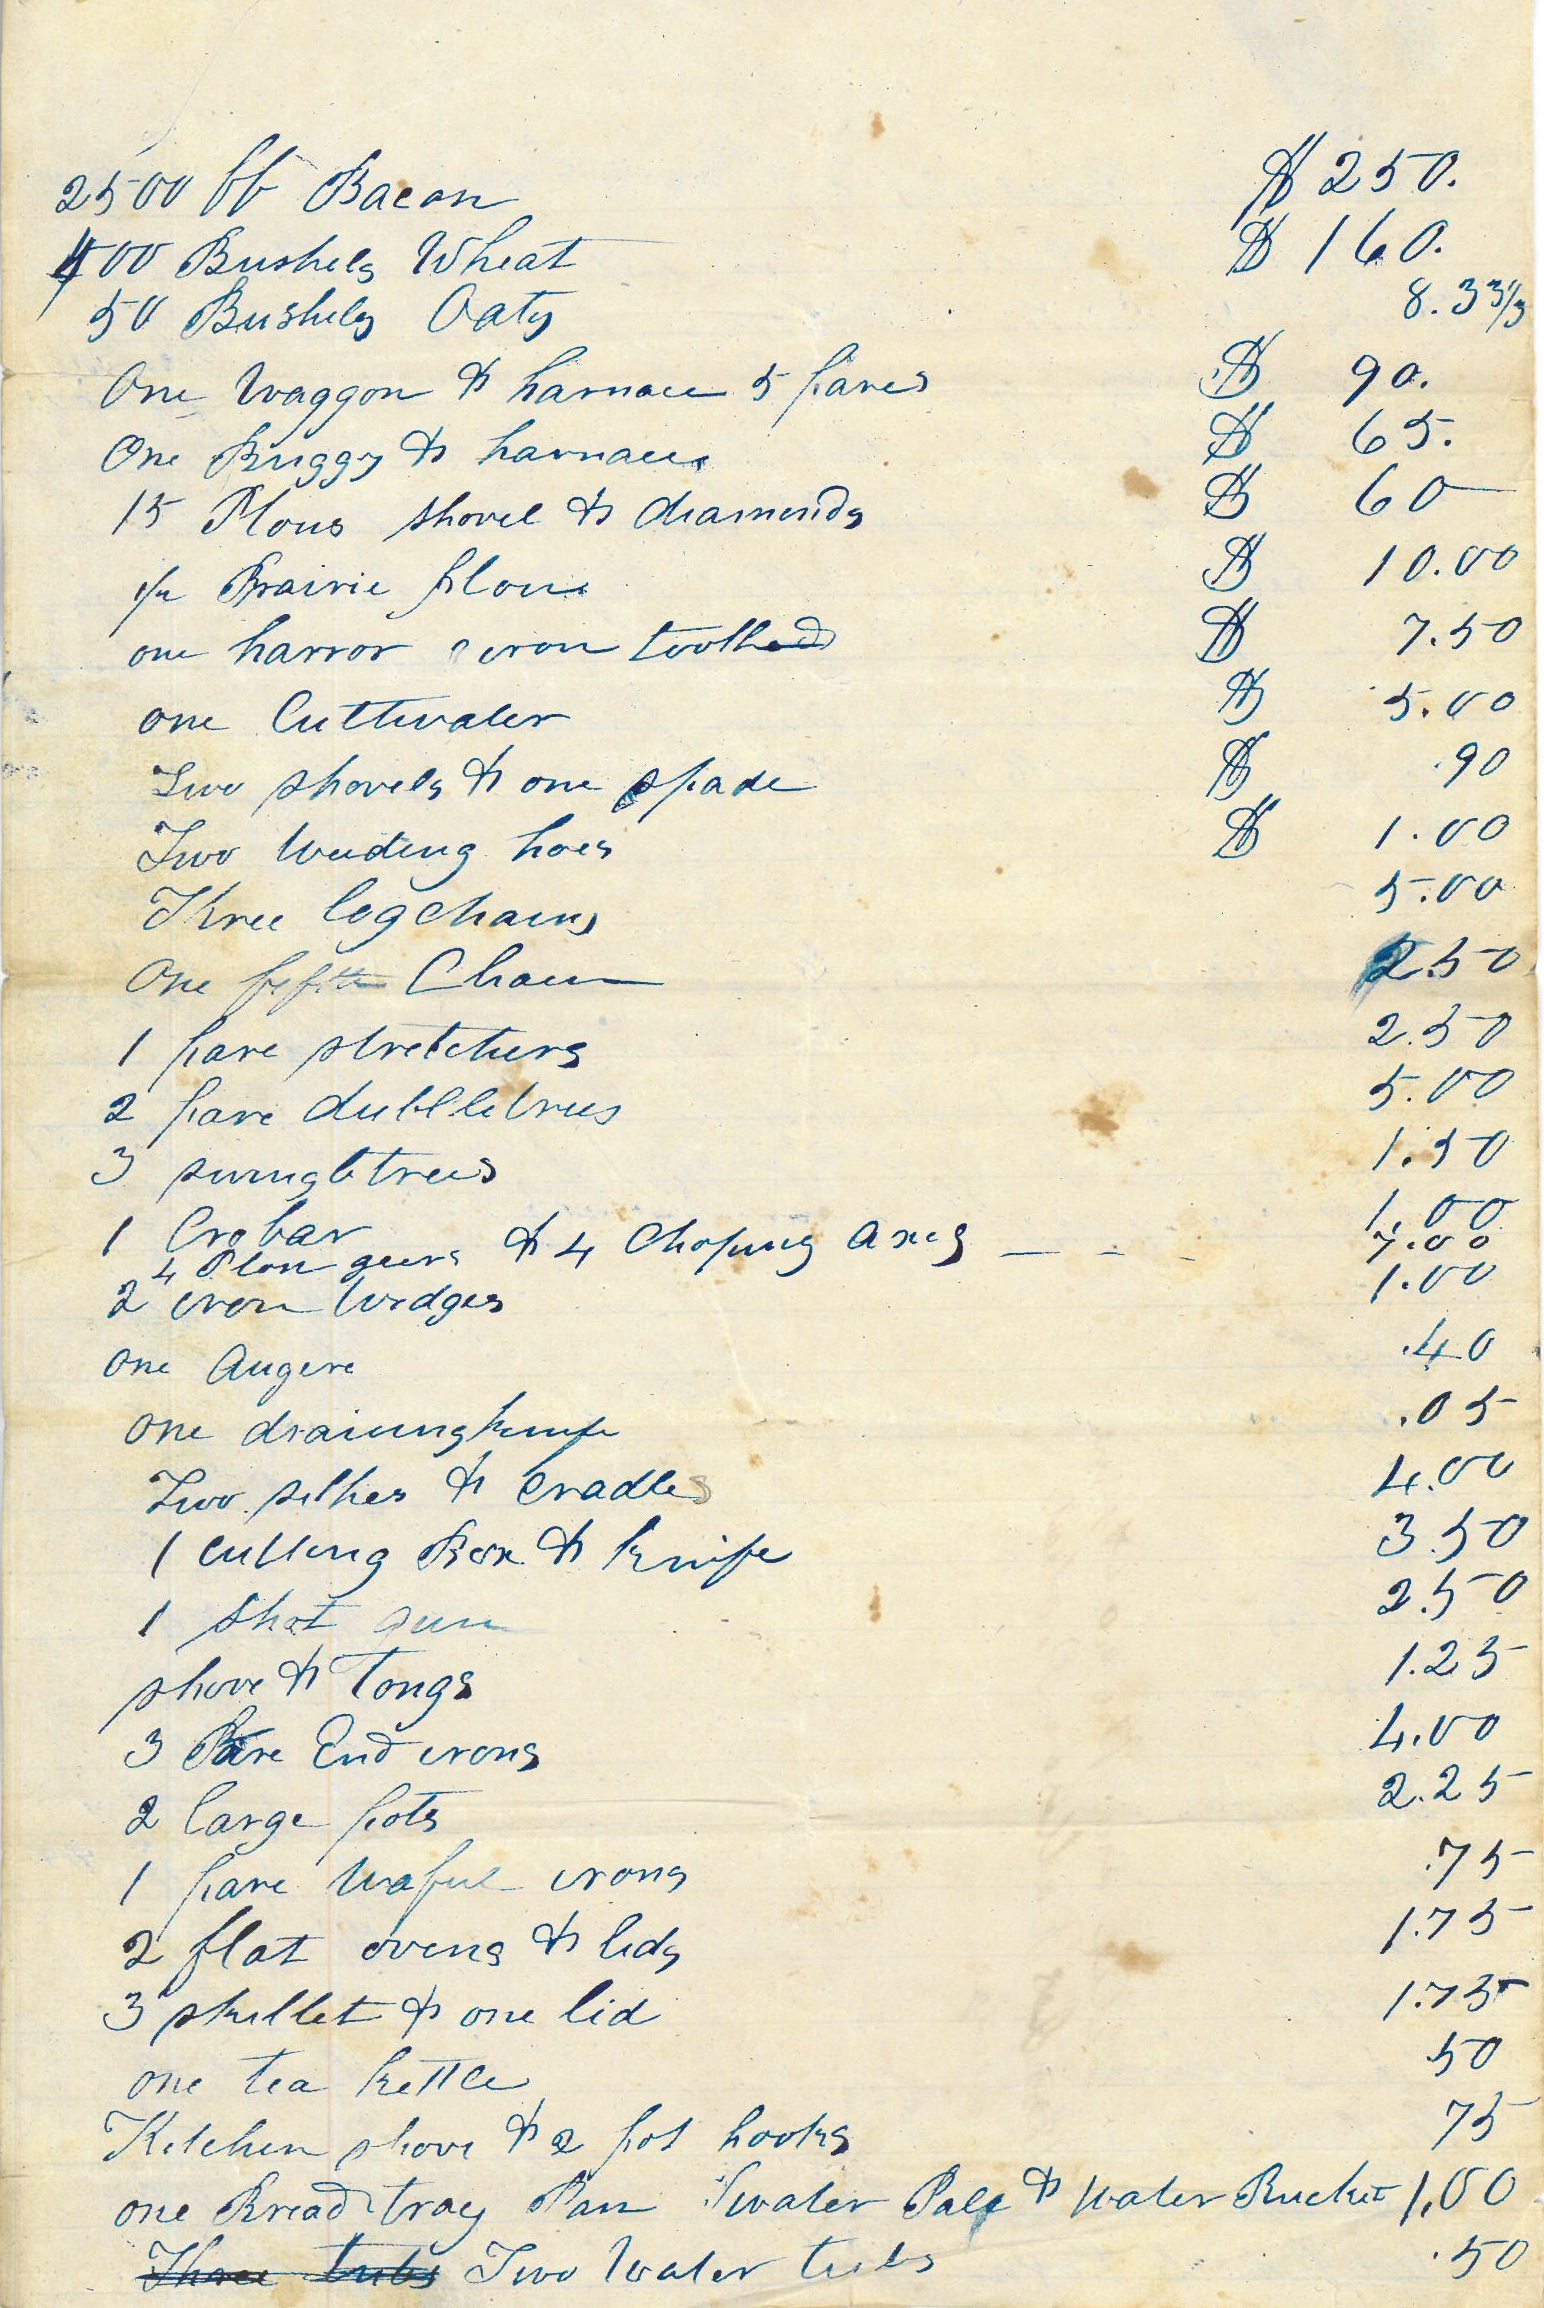 2500 lb Bacon $ 250.
400 Bushels Wheat $ 160.
50 Bushels Oats 8.33 1/3
One Waggon & harnace 5 pares $ 90.
One Buggy & harnace $ 65.
15 Plows shovel & diamonds $ 60
Prairie plow $ 10.00
one harror iron toothed $ 7.50
one Cuttwater $ 5.00
Two shovels & one spade $ .90
Two weeding hoes $ 1.00
Three log chains 5.00
One fifth Chain 2.50
1 pare stretchers 2.50
2 pare dubbletrees 5.00
3 swingletrees 1.50
1 Crobar 1.00
4 Plow geers & 4 Choping axes 7.00
2 iron wedges 1.00
one Augere .40
one draiungknife .05
Two sithes & cradles 4.00
1 cutting Box & knife 3.50
1 shot gun 2.50
shove & Tongs 1.25
3 Pare End irons 4.00
2 large pots 2.25
1 pare waful irons .75
2 flat ovens & lids 1.75
3 skillet & one lid 1.75
one tea kettle .50
Kitchen shove & 2 pot hooks 75
one Bread tray Pan 1 water Pale & water Bucket 1.00
Three tubs Two Water tubs .50